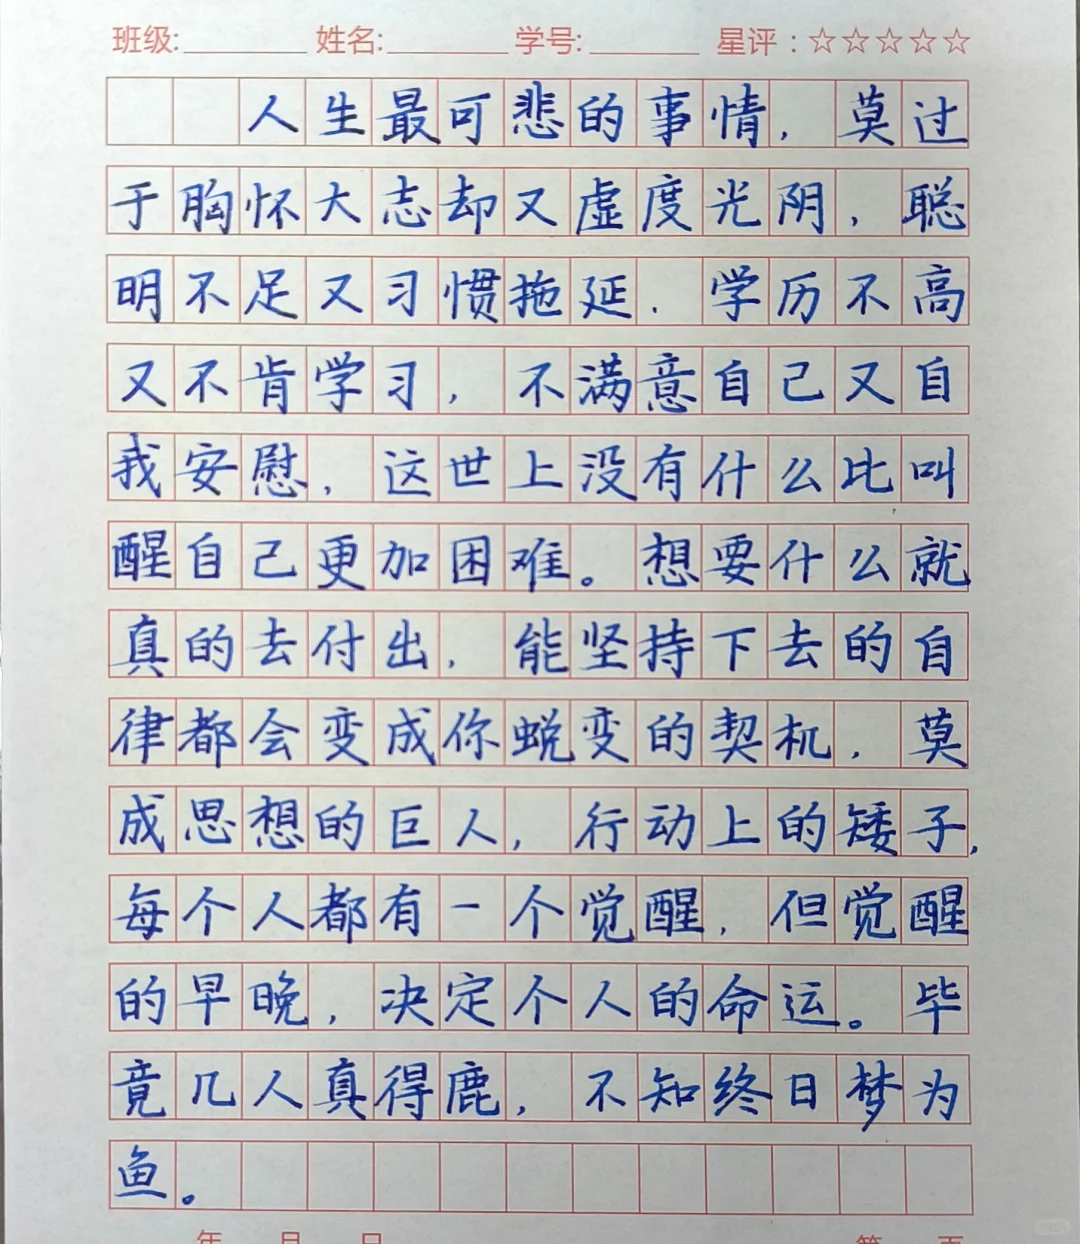 班级:________ 姓名:________ 学号:________ 星评:☆☆☆☆☆
人生最可悲的事情，莫过
于胸怀大志却又虚度光阴，聪
明不足又习惯拖延．学历不高
又不肯学习，不满意自己又自
我安慰，这世上没有什么比叫
醒自己更加困难。想要什么就
真的去付出，能坚持下去的自
律都会变成你蜕变的契机，莫
成思想的巨人，行动上的矮子，
每个人都有一个觉醒，但觉醒
的早晚，决定个人的命运。毕
竟几人真得鹿，不知终日梦为
鱼。
年 月 日